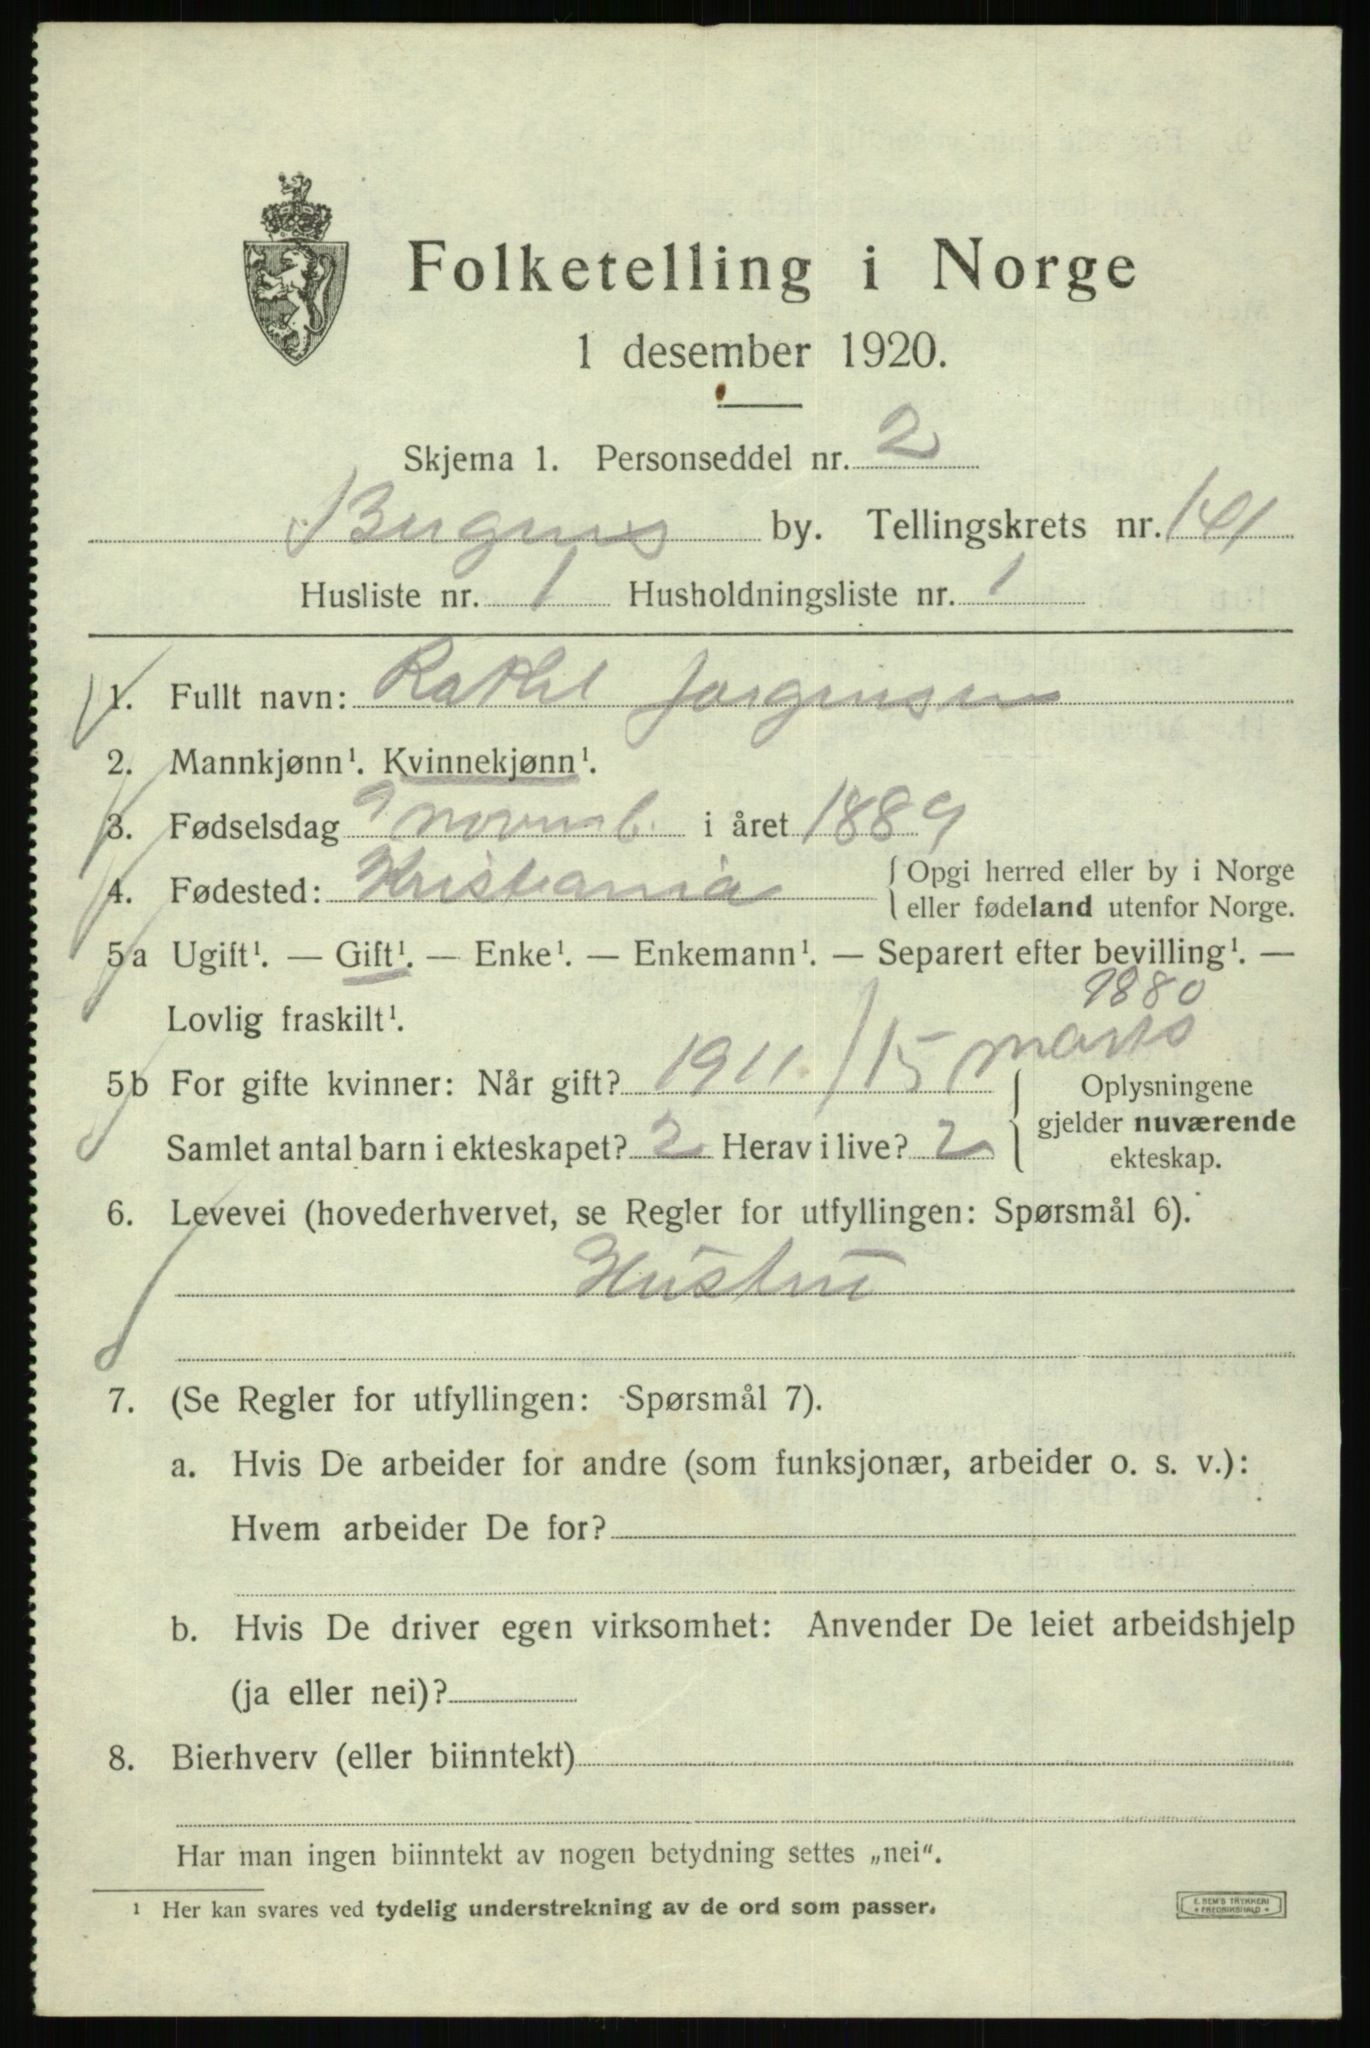 Folketelling i Norge
1 desember 1920.
Skjema 1. Personseddel nr. 2
Bergens by. Tellingskrets nr. 141
Husliste nr. 1 Husholdningsliste nr. 1
1. Fullt navn: Rakel Jørgensen
2. Mannkjønn¹. Kvinnekjønn¹.
3. Fødselsdag 9 novemb. i året 1889
4. Fødested: Kristiania { Opgi herred eller by i Norge
eller fødeland utenfor Norge.
5a Ugift¹. — Gift¹. — Enke¹. — Enkemann¹. — Separert efter bevilling¹. —
Lovlig fraskilt¹.
1880
5b For gifte kvinner: Når gift? 1911. / 15 mars
Samlet antal barn i ekteskapet? 2 Herav i live? 2
{ Oplysningene
gjelder nuværende
ekteskap.
6. Levevei (hovederhvervet, se Regler for utfyllingen: Spørsmål 6).
Hustru
7. (Se Regler for utfyllingen: Spørsmål 7).
a. Hvis De arbeider for andre (som funksjonær, arbeider o. s. v.):
Hvem arbeider De for?
b. Hvis De driver egen virksomhet: Anvender De leiet arbeidshjelp
(ja eller nei)?
8. Bierhverv (eller biinntekt)
Har man ingen biinntekt av nogen betydning settes „nei“.
¹ Her kan svares ved tydelig understrekning av de ord som passer.
E. SEM'S TRYKKERI
* FREDRIKSHALD *